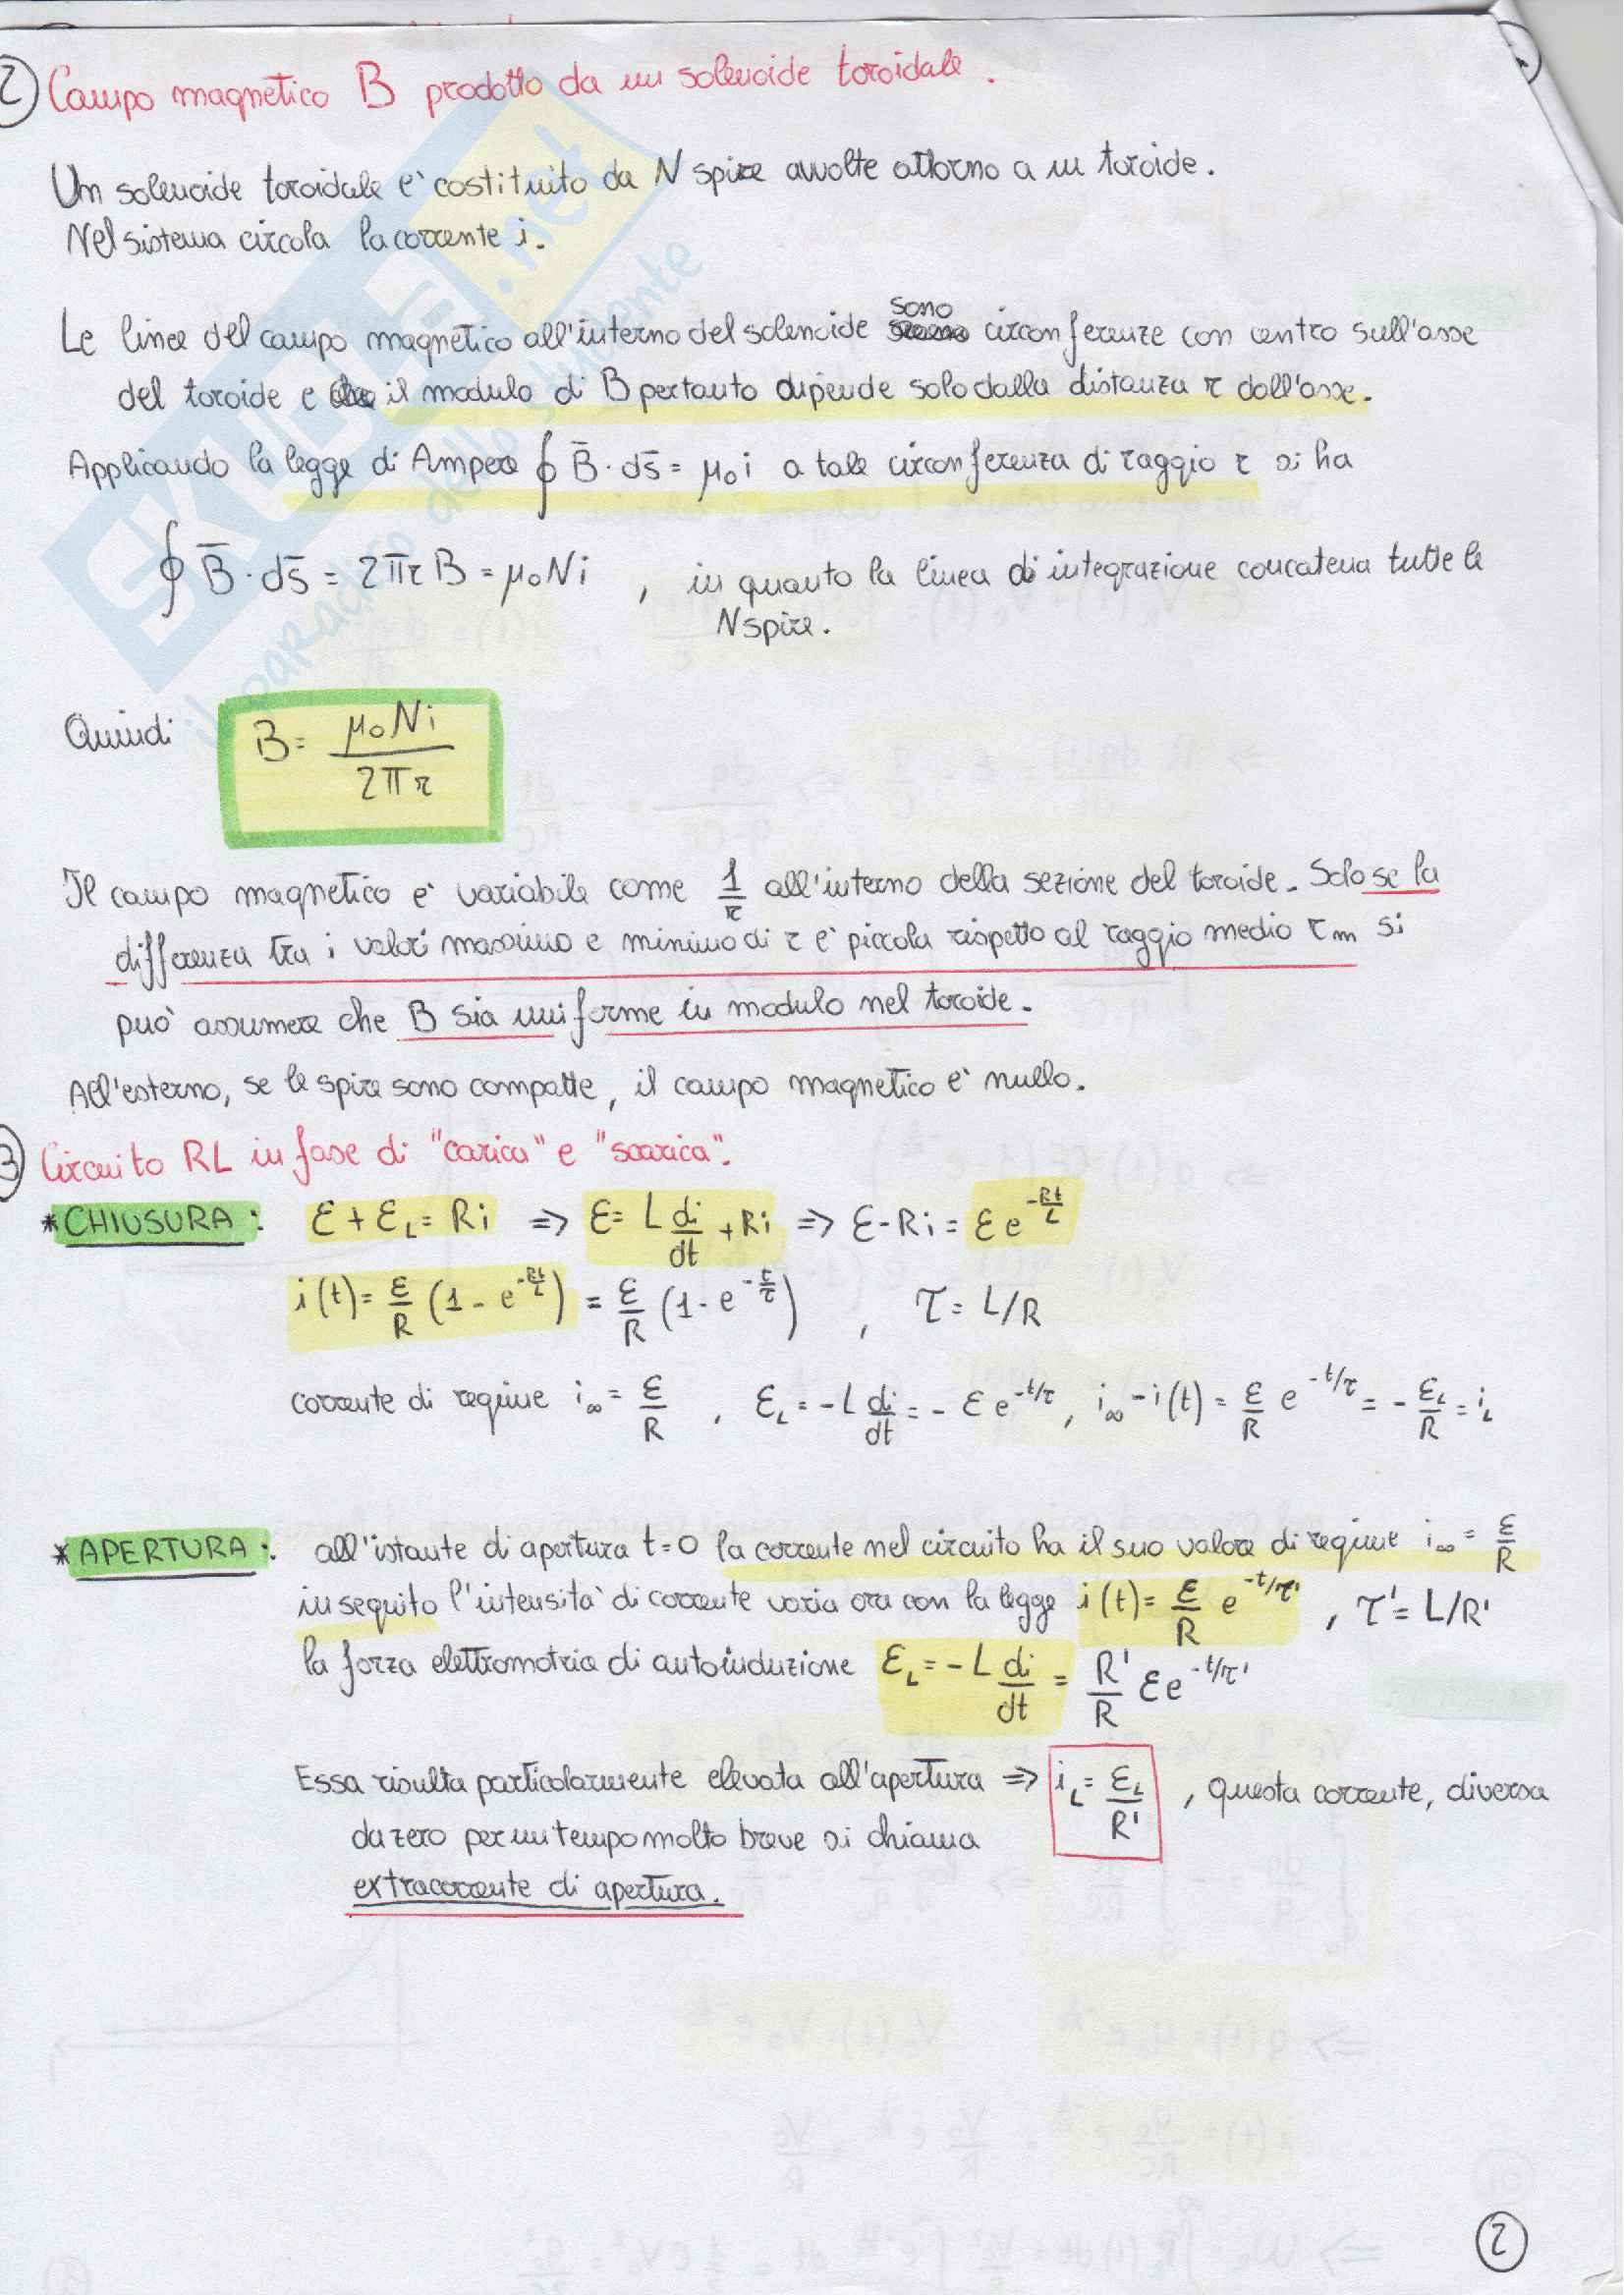 2) Campo magnetico B prodotto da un solenoide toroidale.
Un solenoide toroidale è costituito da N spire avvolte attorno a un toroide.
Nel sistema circola la corrente i.
Le linee del campo magnetico all'interno del solenoide sono circonferenze con centro sull'asse
del toroide e il modulo di B pertanto dipende solo dalla distanza r dall'asse.
Applicando la legge di Ampere ∮ B̄ · ds̄ = μ₀ i a tale circonferenza di raggio r si ha
∮ B̄ · ds̄ = 2πr B = μ₀ N i , in quanto la linea di integrazione concatena tutte le
N spire.
Quindi B = μ₀ N i / 2πr
Il campo magnetico è variabile come 1/r all'interno della sezione del toroide. Solo se la
differenza tra i valori massimo e minimo di r è piccola rispetto al raggio medio rm si
può assumere che B sia uniforme in modulo nel toroide.
All'esterno, se le spire sono compatte, il campo magnetico è nullo.
3) Circuito RL in fase di "carica" e "scarica".
* CHIUSURA: ℰ + ℰL = Ri => ℰ = L di/dt + Ri => ℰ - Ri = ℰ e^(-Rt/L)
i(t) = ℰ/R (1 - e^(-Rt/L)) = ℰ/R (1 - e^(-t/τ)) , τ = L/R
corrente di regime i∞ = ℰ/R , ℰL = -L di/dt = - ℰ e^(-t/τ) , i∞ - i(t) = ℰ/R e^(-t/τ) = - ℰL/R = iL
* APERTURA: all'istante di apertura t=0 la corrente nel circuito ha il suo valore di regime i∞ = ℰ/R
in seguito l'intensità di corrente varia ora con la legge i(t) = ℰ/R e^(-t/τ') , τ' = L/R'
la forza elettromotrice di autoinduzione ℰL = -L di/dt = R'/R ℰ e^(-t/τ')
Essa risulta particolarmente elevata all'apertura => iL = ℰL/R' , questa corrente, diversa
da zero per un tempo molto breve si chiama
extracorrente di apertura.
2
SKUOLA.net
il paradiso dello studente